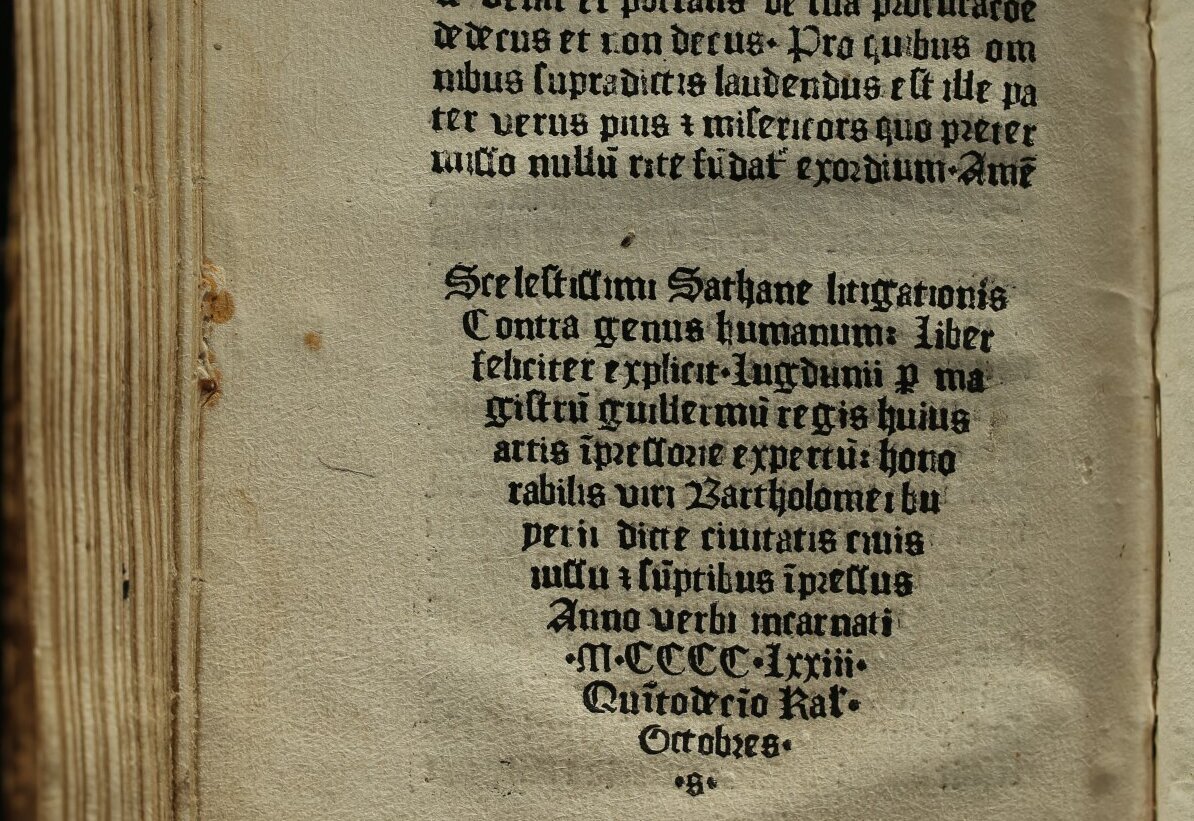 dedecus et non decus· Pro quibus om
nibus supradictis laudendus est ille pa
ter verus pius ⁊ misericors quo preter
misso nullū rite fūdat᷑ exordium·Amē
Scelestissimi Sathane litigationis
Contra genus humanum: Liber
feliciter explicit·Lugdunii ꝑ ma
gistrū guillermū regis huius
artis īpressorie expertū: hono
rabilis viri Bartholomei bu
yerii dicte ciuitatis ciuis
iussu ⁊ sūptibus īpressus
Anno verbi incarnati
·M·CCCC·Lxxiii·
Quītodecīo Kal᷑·
Octobres·
·s·